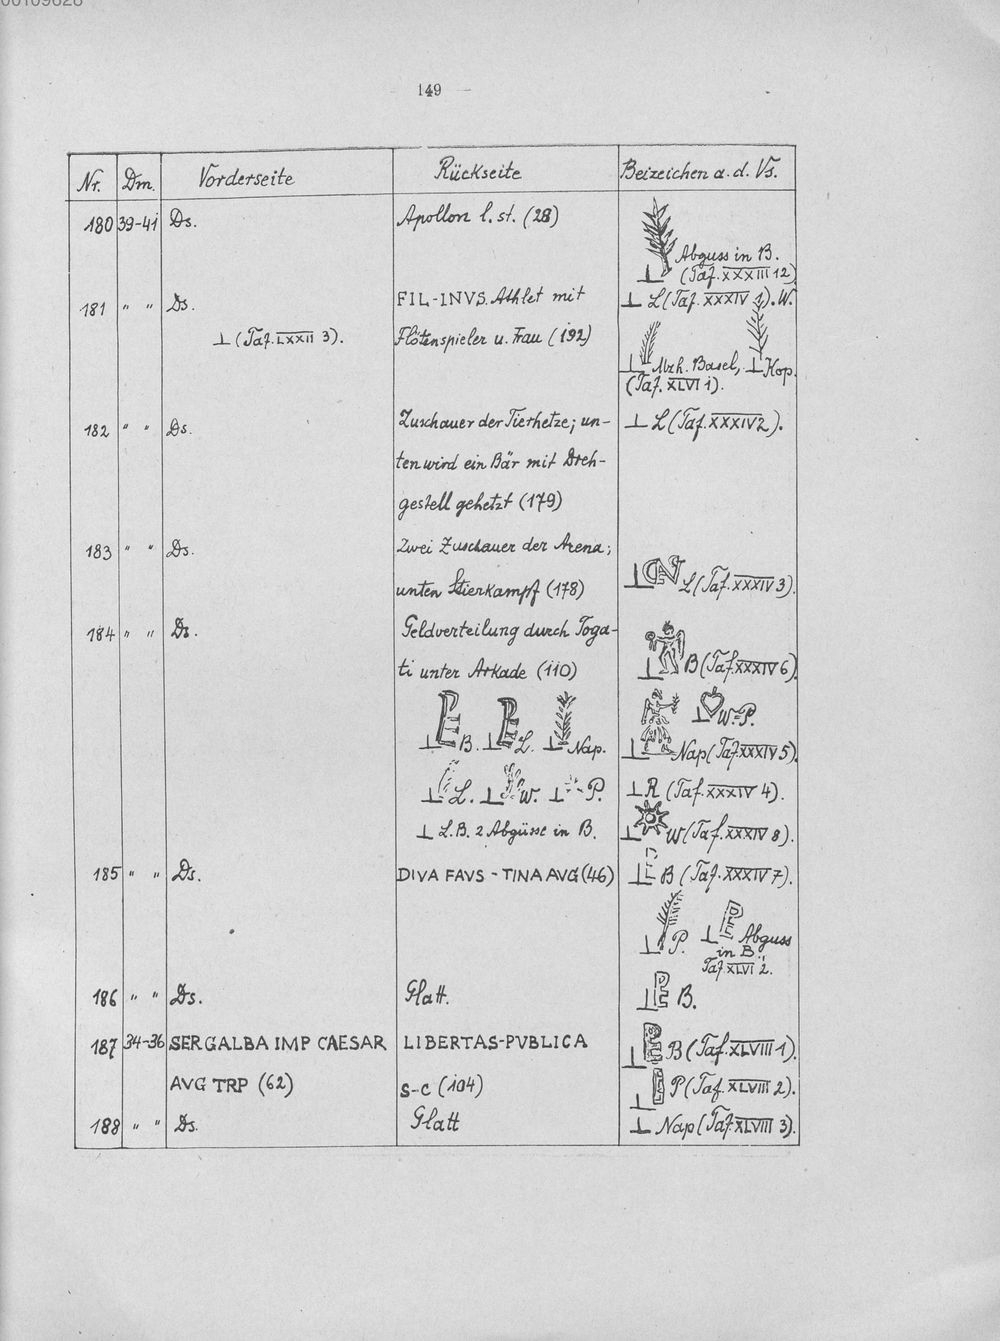 00109628
149
Nr. Dm. Vorderseite Rückseite Beizeichen a. d. Vs.
180 39-41 Ds. Apollon l. st. (28)
Abguss in B.
⊥ (Taf. XXXIII 12)
181 " " Ds. FIL-INVS. Athlet mit ⊥ L (Taf. XXXIV 1). W.
⊥ (Taf. LXXII 3). Flötenspieler u. Frau (192)
⊥ Abzh. Basel, ⊥ Kop.
(Taf. XLVI 1).
182 " " Ds. Zuschauer der Tierhetze; un- ⊥ L (Taf. XXXIV 2).
ten wird ein Bär mit Dreh-
gestell gehetzt (179)
183 " " Ds. Zwei Zuschauer der Arena;
unten Stierkampf (178) ⊥ L (Taf. XXXIV 3).
184 " " Ds. Geldverteilung durch Toga-
ti unter Arkade (110) ⊥ B (Taf. XXXIV 6)
⊥ W=P.
⊥ PE B. ⊥ PE L. ⊥ Nap. ⊥ Nap (Taf. XXXIV 5)
⊥ L. ⊥ W. ⊥ P. ⊥ R (Taf. XXXIV 4).
⊥ L. B. 2 Abgüsse in B. ⊥ W (Taf. XXXIV 8).
185 " " Ds. DIVA FAVS - TINA AVG (46) ⊥ B (Taf. XXXIV 7).
⊥ P. ⊥ PE Abguss
in B.
Taf. XLVI 2.
186 " " Ds. Glatt. ⊥ PE B.
187 34-36 SER GALBA IMP CAESAR LIBERTAS-PVBLICA ⊥ PE B (Taf. XLVIII 1).
AVG TRP (62) S-C (104) ⊥ P (Taf. XLVIII 2).
188 " " Ds. Glatt ⊥ Nap (Taf. XLVIII 3).